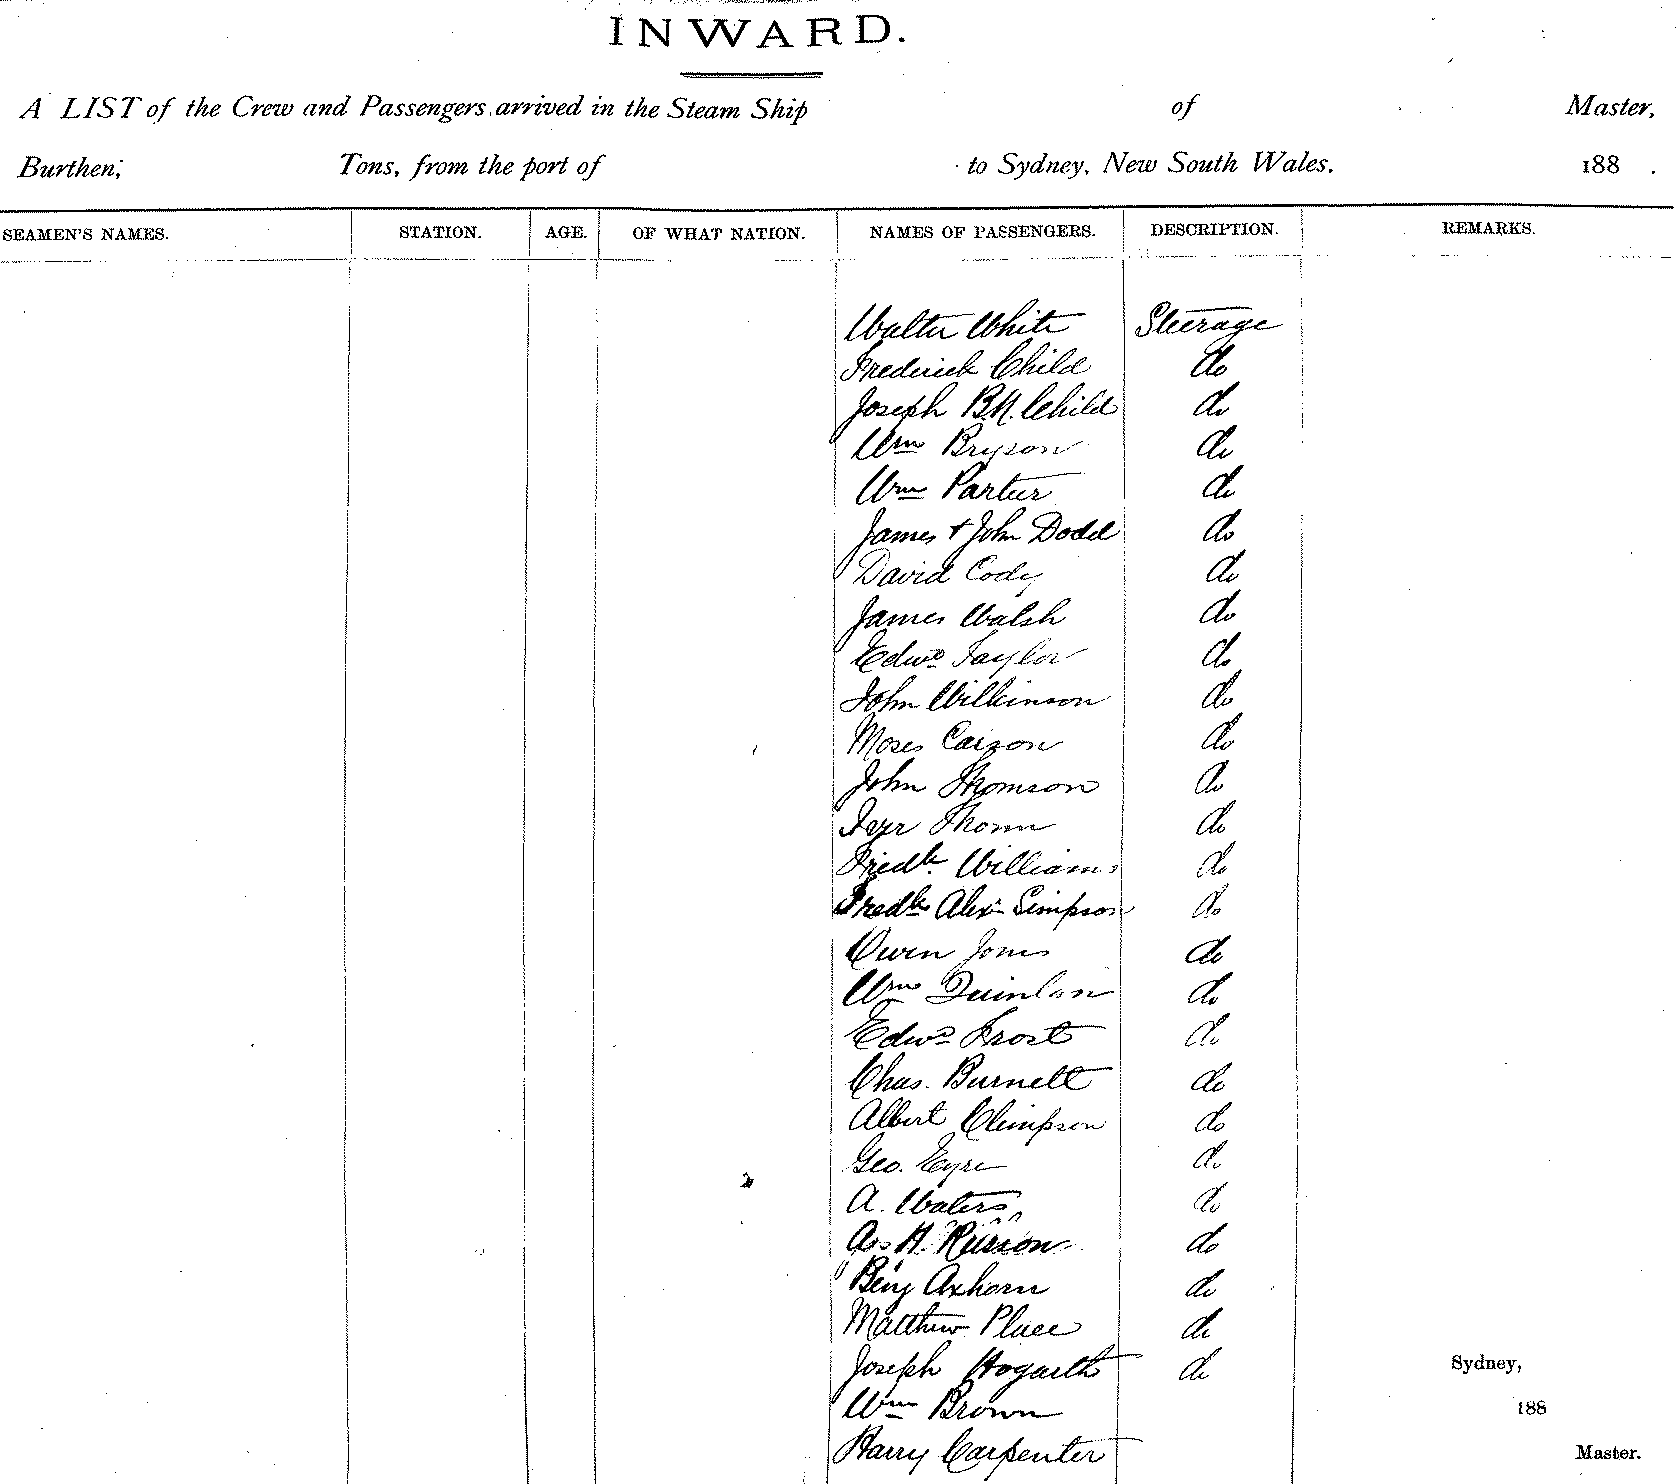 INWARD.
A LIST of the Crew and Passengers arrived in the Steam Ship of Master,
Burthen, Tons, from the port of to Sydney, New South Wales. 188 .
SEAMEN'S NAMES. STATION. AGE. OF WHAT NATION. NAMES OF PASSENGERS. DESCRIPTION. REMARKS.
Walter White Steerage
Frederick Child do
Joseph B.N. Child do
Wm Bryson do
Wm Parter do
James + John Dodd do
David Cody do
James Walsh do
Edwd Taylor do
John Wilkinson do
Moses Carson do
John Thomson do
Thom do
Fredk. Williams do
Fredk Alexr Simpson do
Owen Jones do
Wm Quinlan do
Edwd Frost do
Chas. Burnett do
Albert Climpson do
Geo. Eyre do
A. Waters do
H. Russon do
Benj Axhorn do
Matthew Place do
Joseph Hogarth do Sydney,
Wm Brown 188
Harry Carpenter Master.